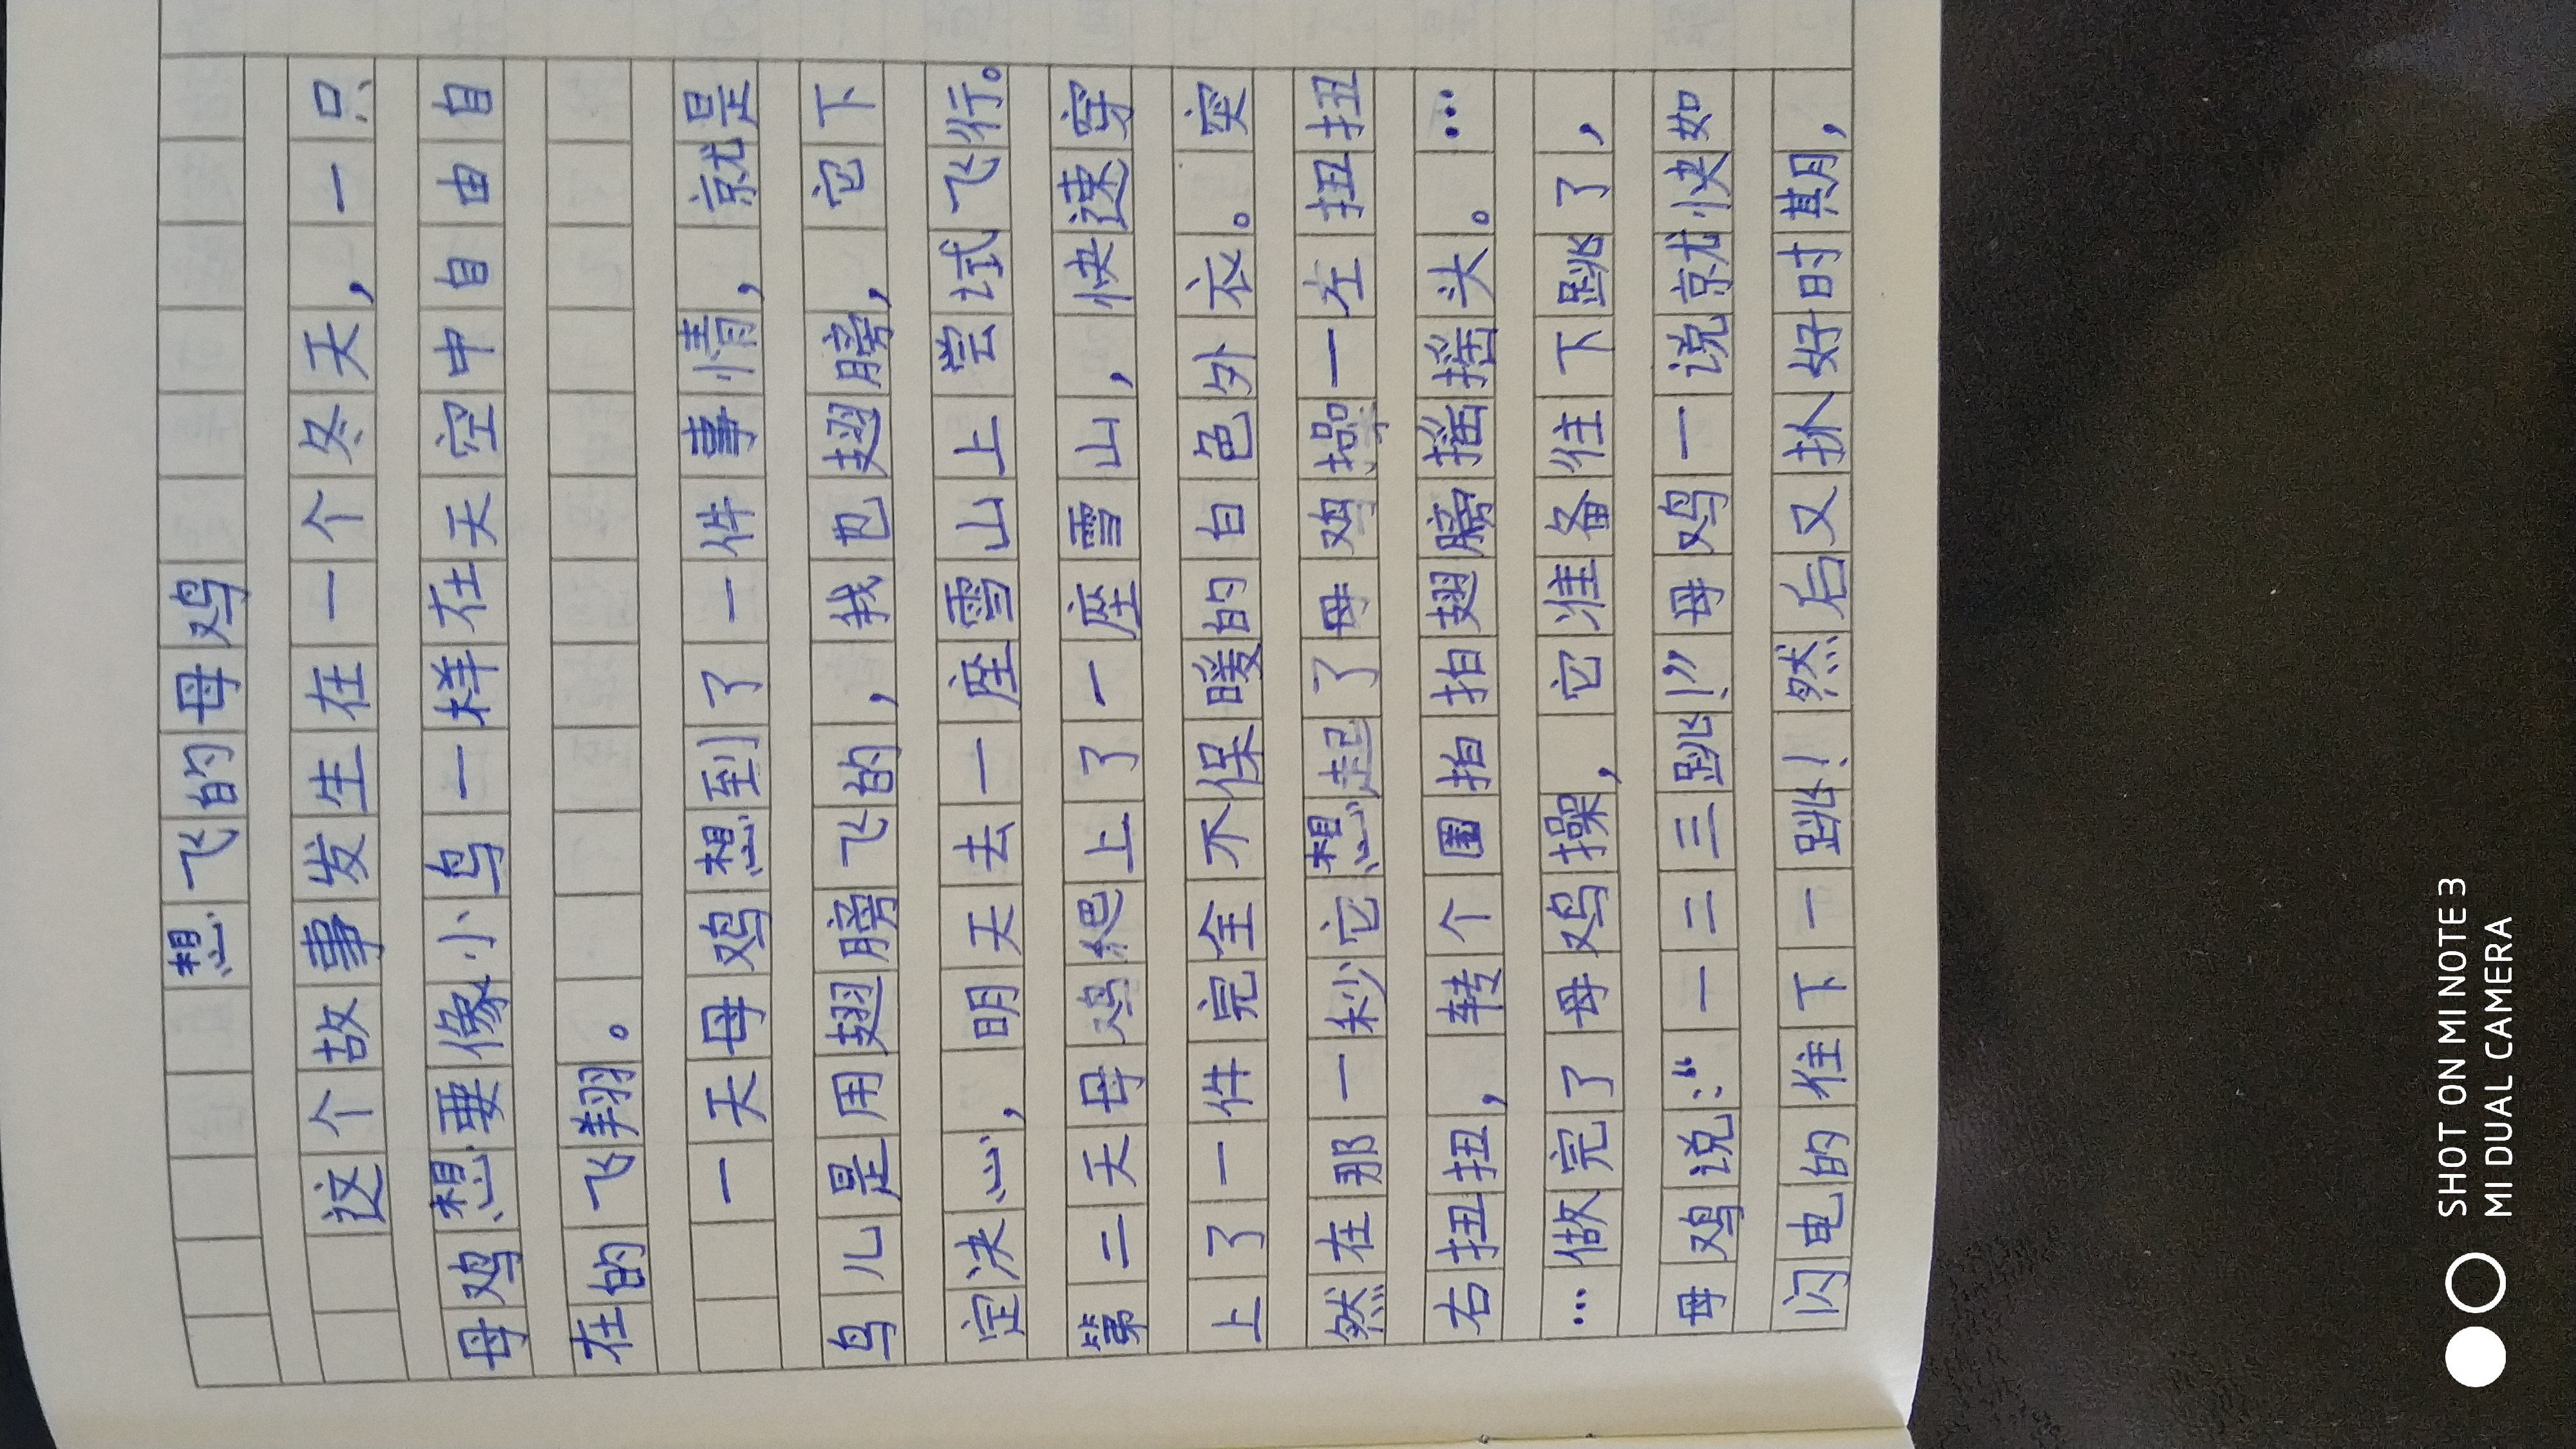 想飞的母鸡
这个故事发生在一个冬天，一只
母鸡想要像小鸟一样在天空中自由自
在的飞翔。
一天母鸡想到了一件事情，就是
鸟儿是用翅膀飞的，我也翅膀，它下
定决心，明天去一座雪山上尝试飞行。
第二天母鸡爬上了一座雪山，快速穿
上了一件完全不保暖的白色外衣。突
然在那一秒它想起了母鸡操一左扭扭
右扭扭，转个圈拍拍翅膀摇摇头。…
…做完了母鸡操，它准备往下跳了，
母鸡说：“一二三跳！”母鸡一说就快如
闪电的往下一跳！然后又扑好时期，
SHOT ON MI NOTE 3
MI DUAL CAMERA